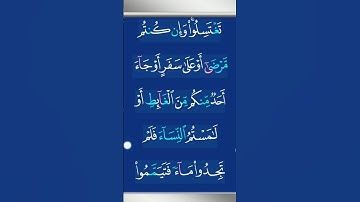 تَغْتَسِلُوا۟ ۚ وَإِن كُنتُم
مَّرْضَىٰٓ أَوْ عَلَىٰ سَفَرٍ أَوْ جَآءَ
أَحَدٌ مِّنكُم مِّنَ ٱلْغَآئِطِ أَوْ
لَـٰمَسْتُمُ ٱلنِّسَآءَ فَلَمْ
تَجِدُوا۟ مَآءً فَتَيَمَّمُوا۟